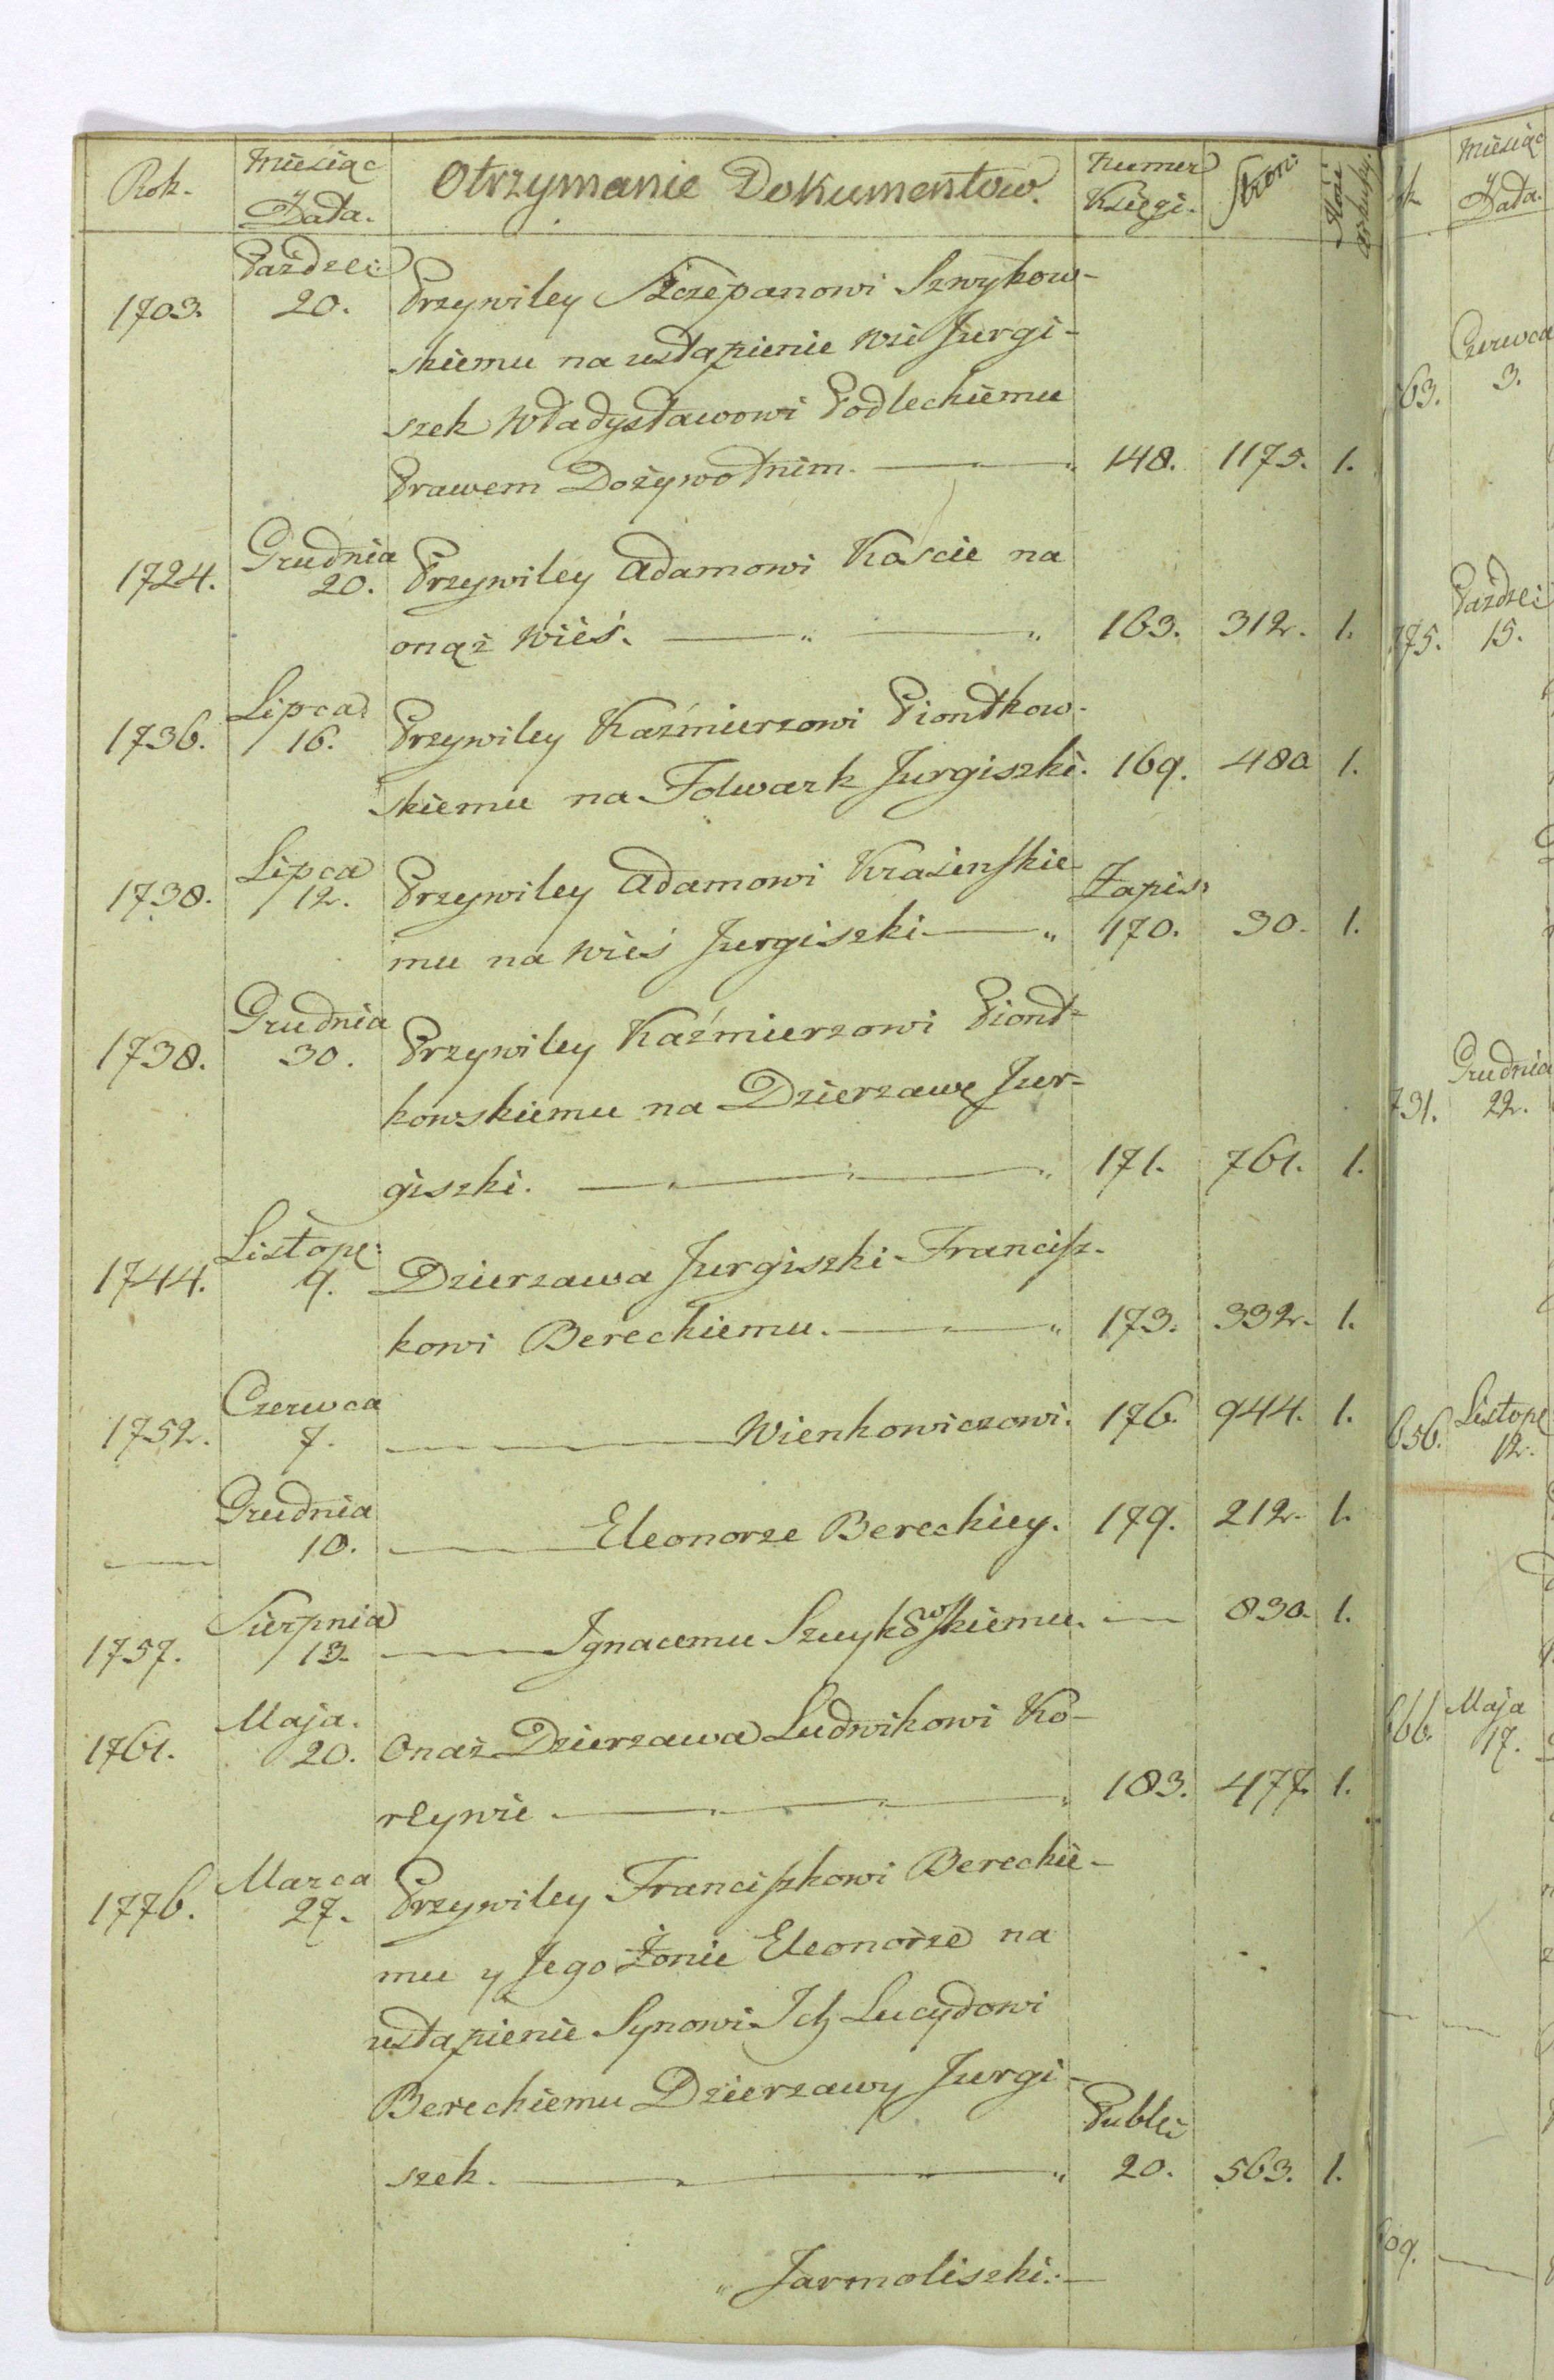 Rok. Miesiąc Data. Otrzymanie Dokumentow. Numer Księgi. Stron: Ilość arkuszy.
1703. Paździ: 20. Przywiley Szczepanowi Szwykow-
skiemu na ustąpienie Wsi Jurgi-
szek Władysławowi Podleckiemu
Prawem Dożywotnim. 148. 1175. 1.
1724. Grudnia 20. Przywiley Adamowi Koscie na
onąż Wieś. 163. 312. 1.
1736. Lipca 16. Przywiley Kaźmierzowi Piontkow-
skiemu na Folwark Jurgiszki. 169. 480 1.
1738. Lipca 12. Przywiley Adamowi Krasinskie-
mu na Wieś Jurgiszki Zapis: 170. 30. 1.
1738. Grudnia 30. Przywiley Kaźmierzowi Piont-
kowskiemu na Dzierzawę Jur-
giszki. 171. 761. 1.
1744. Listop: 9. Dzierzawa Jurgiszki Francisz-
kowi Bereckiemu. 173. 332. 1.
1752. Czerwca 7. — Wienkowiczowi. 176. 944. 1.
— Grudnia 10. — Eleonorze Bereckiey. 179. 212. 1.
1757. Sierpnia 13. — Ignacemu Szuykowskiemu. — 830. 1.
1761. Maja. 20. Onaż Dzierzawa Ludwikowi Ko-
reywie 183. 477. 1.
1776. Marca 27. Przywiley Franciszkowi Bereckie-
mu y Jego Żonie Eleonorze na
ustąpienie Synowi Ich Lucydowi
Bereckiemu Dzierzawy Jurgi-
szek. Publi: 20. 563. 1.
Jarmoliszki.
Miesiąc
Data.
63. Czerwca 3.
Paździ: 15.
731. Grudnia 22.
656. Listop: 12.
Maja 17.